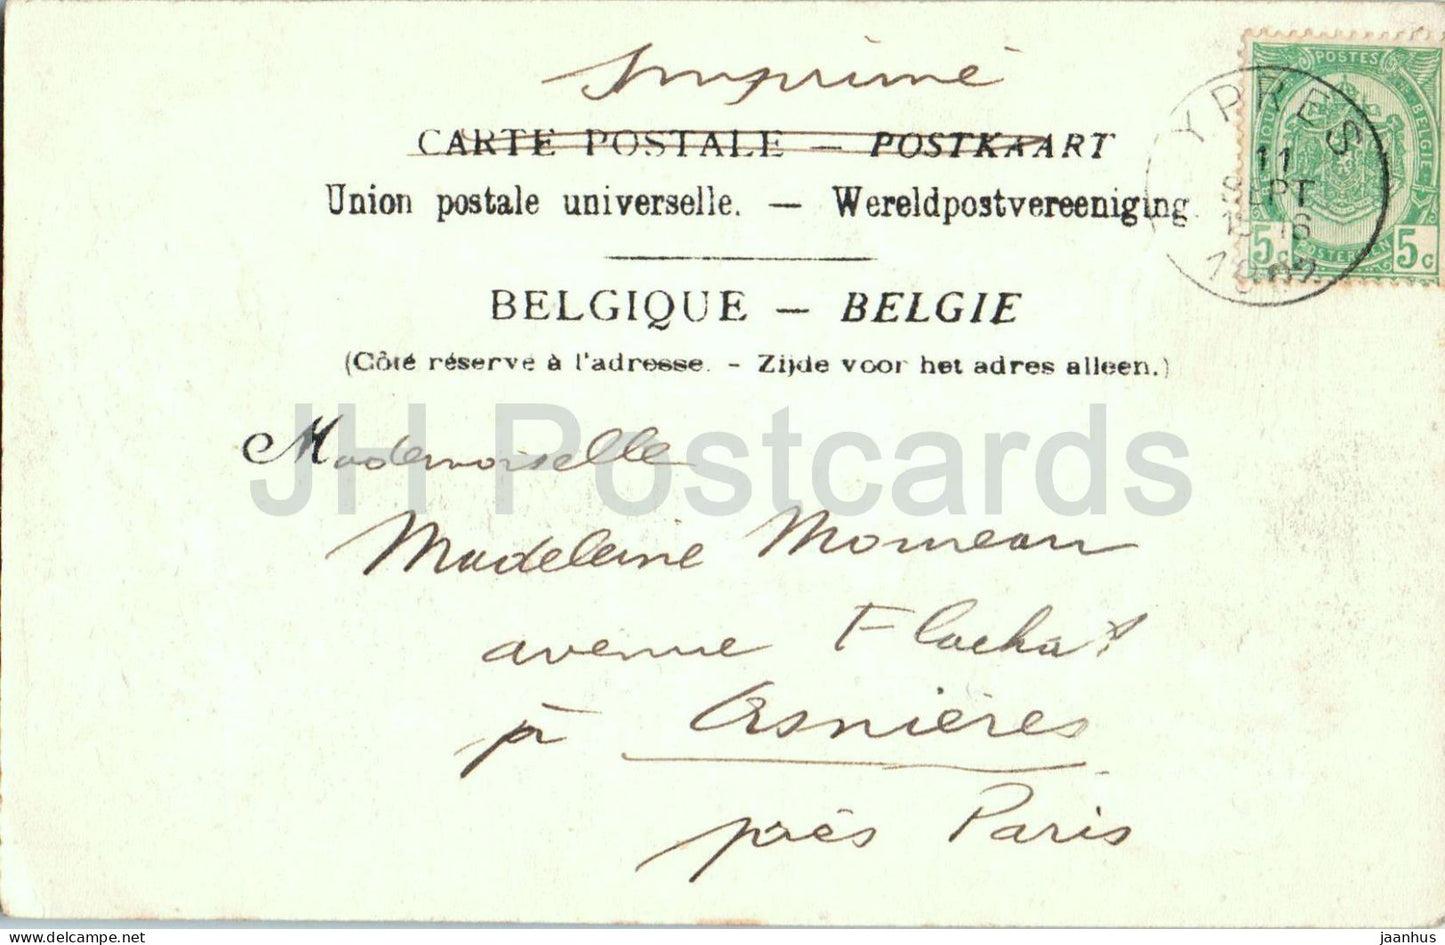 Imprimé
CARTE POSTALE — POSTKAART
Union postale universelle. — Wereldpostvereeniging.
BELGIQUE — BELGIE
(Côté réservé à l'adresse. - Zijde voor het adres alleen.)
Mademoiselle
Madeleine Momeau
avenue Flachat
à Asnières
près Paris
POSTES
5c 5c
POSTERIJEN
YPRES
11
SEPT
15-16
1902
JH Postcards
www.delcampe.net
jaanhus